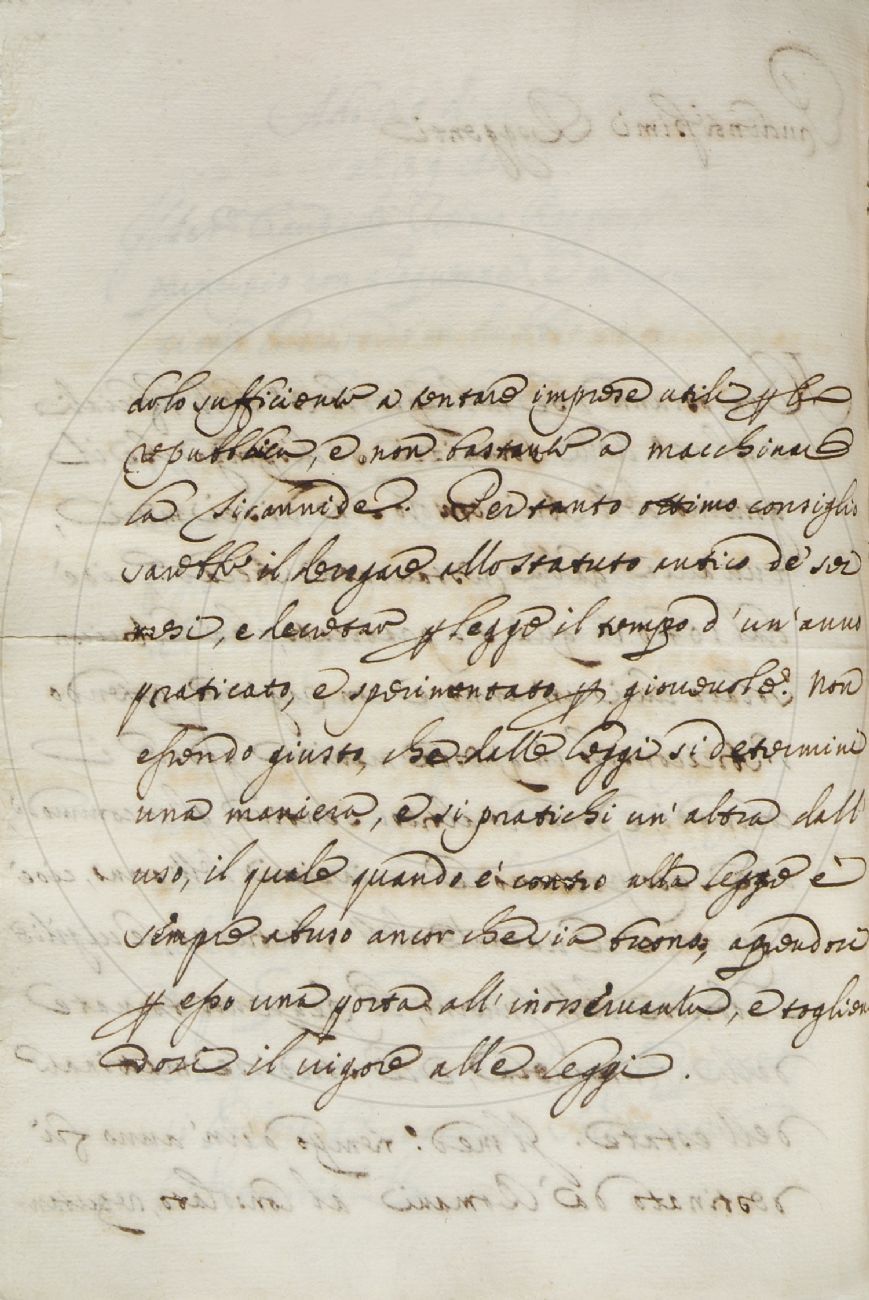 dolo sufficiente a tentare imprese utili ꝑ la
republica, e non bastante a machinare
la Tirannide. Pertanto ottimo consiglio
sarebbe il derogare allo statuto antico de' sei
mesi, e decretar ꝑ legge il tempo d'un'anno
praticato, e sperimentato ꝑ giouevole. Non
essendo giusto, che dalle leggi si determini
una maniera, e si pratichi un'altra dall'
uso, il quale quando e' contro alla legge e'
sempre abuso ancor che sia buono, aprendosi
ꝑ esso una porta all'inosservanza, e toglien
dosi il vigore alle leggi.